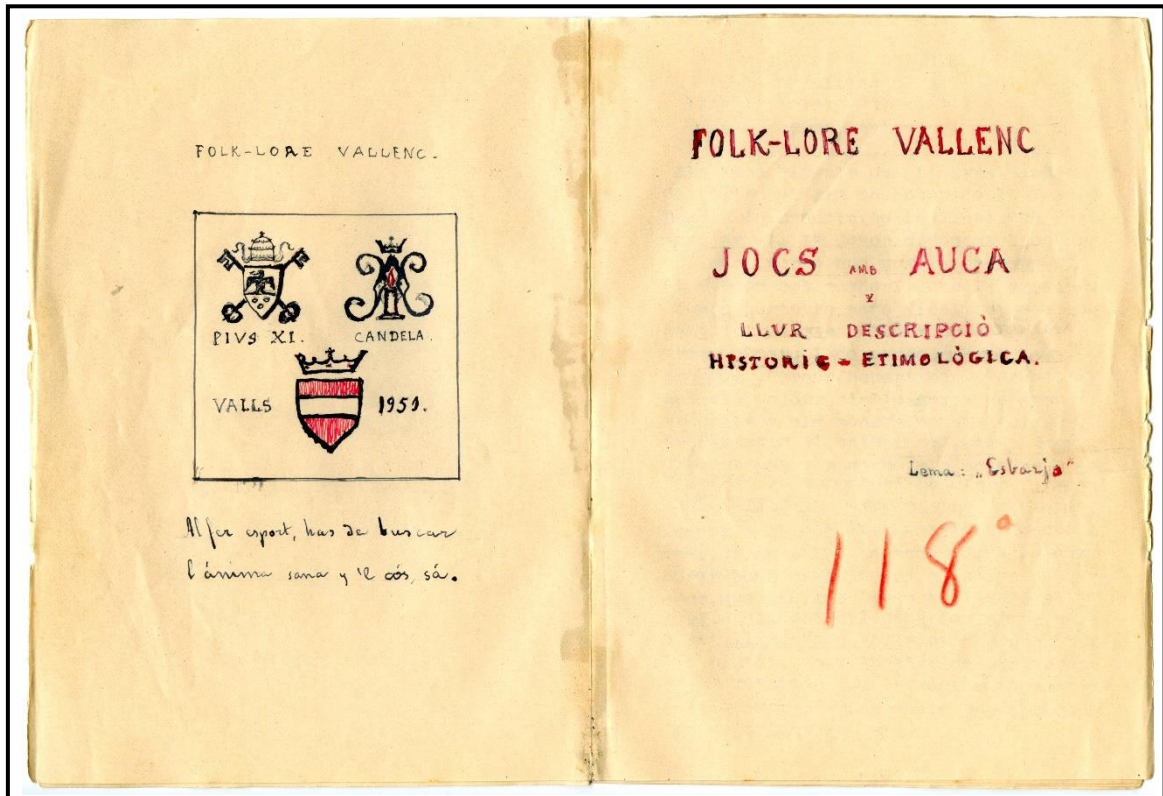 FOLK-LORE VALLENC.
PIVS XI. CANDELA.
VALLS 1951.
Al fer esport, has de buscar
l'ánima sana y 'l cós, sá.
FOLK-LORE VALLENC
JOCS AMB AUCA
Y
LLUR DESCRIPCIÒ
HISTORIC - ETIMOLÒGICA.
Lema: „Esbarjo"
118º